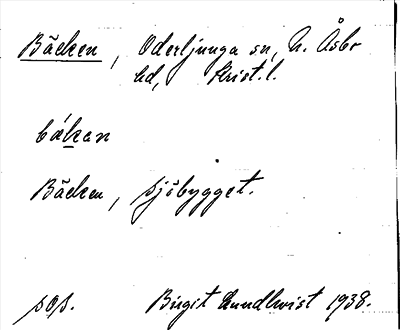 Bäcken, Oderljunga sn, N. Åsbo
hd, Krist.l.
bákan
Bäcken, sjöbygget.
sos. Birgit Lundkvist 1938.